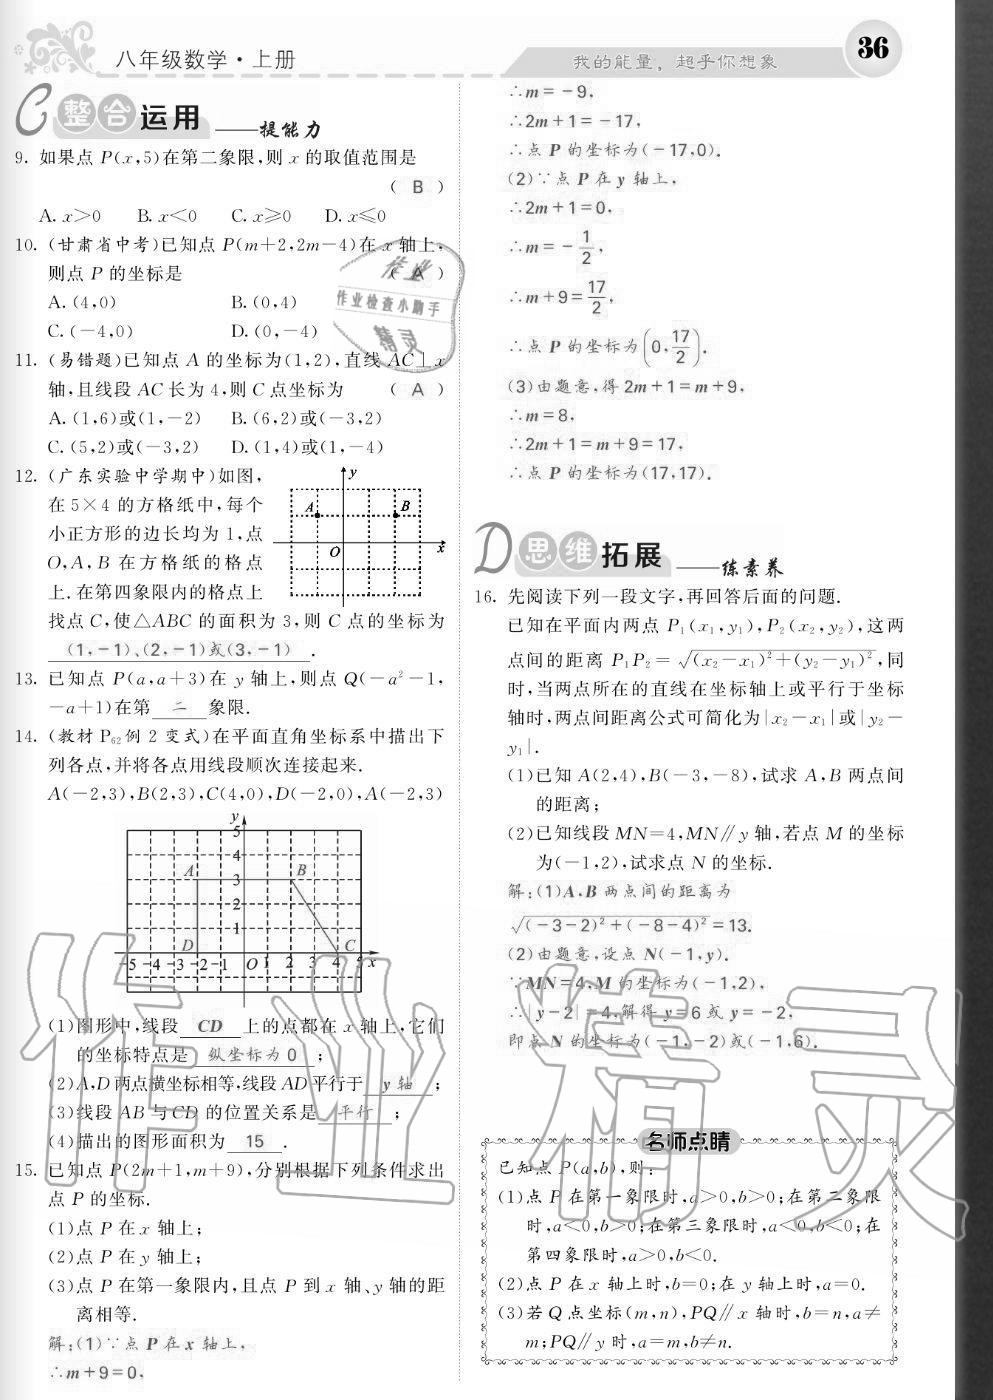 八年级数学·上册
我的能量，超乎你想象
36
C 整合运用 ——提能力
9. 如果点 P(x,5)在第二象限,则 x 的取值范围是
( B )
A. x>0 B. x<0 C. x≥0 D. x≤0
10. (甘肃省中考)已知点 P(m+2,2m-4)在 x 轴上,
则点 P 的坐标是 ( A )
A. (4,0) B. (0,4)
C. (-4,0) D. (0,-4)
11. (易错题)已知点 A 的坐标为(1,2),直线 AC⊥x
轴,且线段 AC 长为 4,则 C 点坐标为 ( A )
A. (1,6)或(1,-2) B. (6,2)或(-3,2)
C. (5,2)或(-3,2) D. (1,4)或(1,-4)
12. (广东实验中学期中)如图,
在 5×4 的方格纸中,每个
小正方形的边长均为 1,点
O,A,B 在方格纸的格点
上.在第四象限内的格点上
找点 C,使△ABC 的面积为 3,则 C 点的坐标为
(1,-1)、(2,-1)或(3,-1) .
y
A
B
O
x
13. 已知点 P(a,a+3)在 y 轴上,则点 Q(-a²-1,
-a+1)在第 二 象限.
14. (教材 P₆₂例 2 变式)在平面直角坐标系中描出下
列各点,并将各点用线段顺次连接起来.
A(-2,3),B(2,3),C(4,0),D(-2,0),A(-2,3)
y
5
4
A 3 B
2
1
D C
-5 -4 -3 -2 -1 O 1 2 3 4 5 x
(1)图形中,线段 CD 上的点都在 x 轴上,它们
的坐标特点是 纵坐标为 0 ;
(2)A,D两点横坐标相等,线段 AD平行于 y 轴 ;
(3)线段 AB 与CD 的位置关系是 平行 ;
(4)描出的图形面积为 15 .
15. 已知点 P(2m+1,m+9),分别根据下列条件求出
点 P 的坐标.
(1)点 P 在 x 轴上;
(2)点 P 在 y 轴上;
(3)点 P 在第一象限内,且点 P 到 x 轴、y 轴的距
离相等.
解:(1)∵点 P 在 x 轴上,
∴m+9=0,
∴m=-9,
∴2m+1=-17,
∴点 P 的坐标为(-17,0).
(2)∵点 P 在 y 轴上,
∴2m+1=0,
∴m=-1/2,
∴m+9=17/2,
∴点 P 的坐标为(0,17/2).
(3)由题意,得 2m+1=m+9,
∴m=8,
∴2m+1=m+9=17,
∴点 P 的坐标为(17,17).
D 思维拓展 ——练素养
16. 先阅读下列一段文字,再回答后面的问题.
已知在平面内两点 P₁(x₁,y₁),P₂(x₂,y₂),这两
点间的距离 P₁P₂=√(x₂-x₁)²+(y₂-y₁)²,同
时,当两点所在的直线在坐标轴上或平行于坐标
轴时,两点间距离公式可简化为|x₂-x₁|或|y₂-
y₁|.
(1)已知 A(2,4),B(-3,-8),试求 A,B 两点间
的距离;
(2)已知线段 MN=4,MN∥y 轴,若点 M 的坐标
为(-1,2),试求点 N 的坐标.
解:(1)A,B 两点间的距离为
√(-3-2)²+(-8-4)²=13.
(2)由题意,设点 N(-1,y).
∵MN=4,M 的坐标为(-1,2),
∴|y-2|=4,解得 y=6 或 y=-2,
即点 N 的坐标为(-1,-2)或(-1,6).
名师点睛
已知点 P(a,b),则:
(1)点 P 在第一象限时,a>0,b>0;在第二象限
时,a<0,b>0;在第三象限时,a<0,b<0;在
第四象限时,a>0,b<0.
(2)点 P 在 x 轴上时,b=0;在 y 轴上时,a=0.
(3)若 Q 点坐标(m,n),PQ∥x 轴时,b=n,a≠
m;PQ∥y 时,a=m,b≠n.
作业
作业检查小助手
精灵
作业精灵